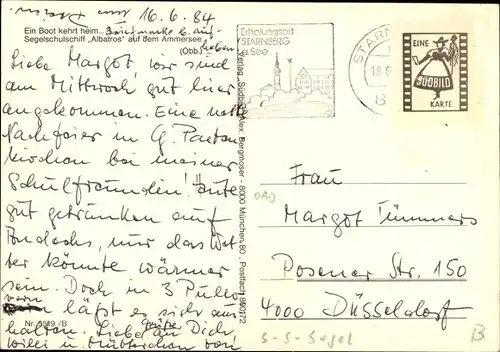 16.6.84
Ein Boot kehrt heim... Briefmarke bitte auf-
Segelschulschiff „Albatros" auf dem Ammersee
(Obb.) kleben
Liebe Margot wir sind
am Mittwoch gut hier
angekommen. Eine nette
Nachfeier in G. Parten
kirchen bei meiner
Schulfreundin! Heute
gut getrunken auf
nur das Wet
ter könnte wärmer
sein. Doch in 3 Pullo
vern läßt es sich aus
halten. Liebe Grüße an Dich,
Willi u. Mütterchen von
Nr. 5519 /B
Verlag „Südbild" Alex. Bergmoser - 8000 München 80, Postfach 800172
Erholungsort
STARNBERG
a. See
STARN
18.6
8
EINE
SÜDBILD
KARTE
Frau
Margot Tümmers
Posener Str. 150
4000 Düsseldorf
S-S-Segel
B